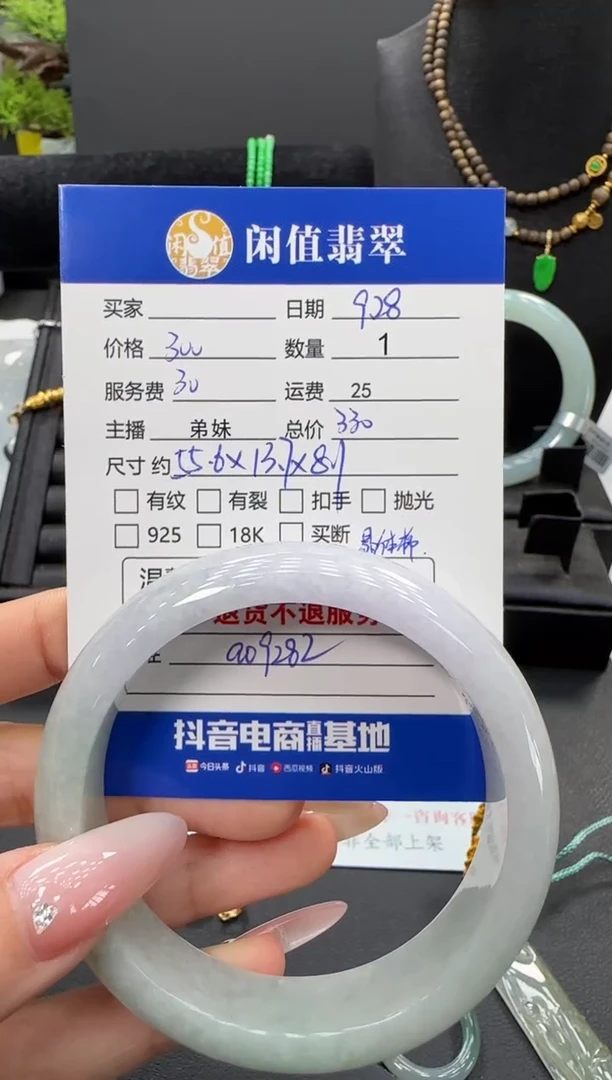 闲值翡翠
闲值翡翠
买家 日期 928
价格 300 数量 1
服务费 30 运费 25
主播 弟妹 总价 330
尺寸 约 55.6×13.7×8.1
有纹 有裂 扣手 抛光
925 18K 买断
退货不退服务
a09282
抖音电商直播基地
今日头条 抖音 西瓜视频 抖音火山版
非全部上架